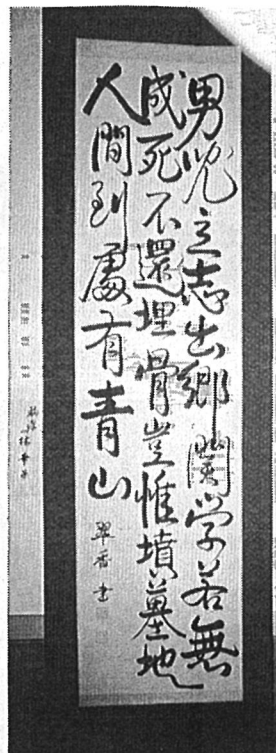 男児立志出郷関学若無
成死不還埋骨豈惟墳墓地
人間到處有青山
翠香書